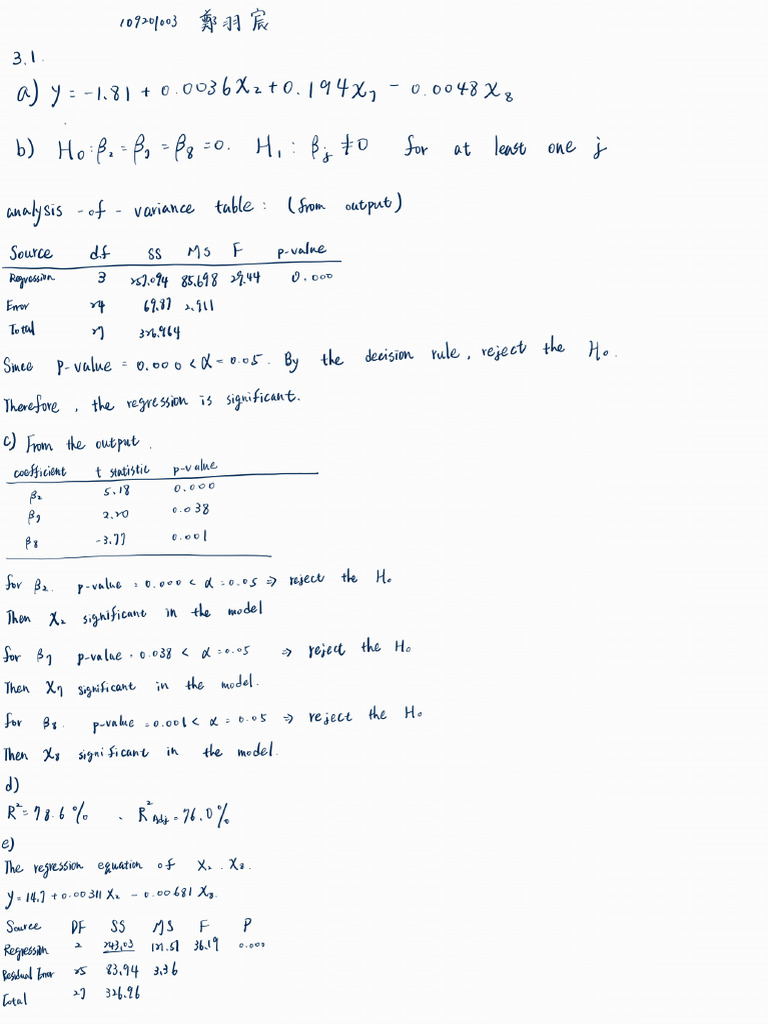 109201003 鄭羽宸
3.1.
a) y = -1.81 + 0.0036 X₂ + 0.194 X₇ - 0.0048 X₈
b) H₀ : β₂ = β₇ = β₈ = 0. H₁ : βⱼ ≠ 0 for at least one j
analysis - of - variance table : (from output)
Source d.f SS MS F p-value
Regression 3 257.094 85.698 29.44 0.000
Error 24 69.87 2.911
Total 27 326.964
Since p-value = 0.000 < α = 0.05. By the decision rule, reject the H₀.
Therefore, the regression is significant.
c) From the output.
coefficient t statistic p-value
β₂ 5.18 0.000
β₇ 2.20 0.038
β₈ -3.77 0.001
for β₂. p-value = 0.000 < α = 0.05 ⇒ reject the H₀
Then X₂ significant in the model
for β₇ p-value = 0.038 < α = 0.05 ⇒ reject the H₀
Then X₇ significant in the model.
for β₈. p-value = 0.001 < α = 0.05 ⇒ reject the H₀
Then X₈ significant in the model.
d)
R² = 78.6 % 、 R²Adj = 76.0 %
e)
The regression equation of X₂ . X₈.
y = 14.7 + 0.00311 X₂ - 0.00681 X₈.
Source DF SS MS F P
Regression 2 243.03 121.51 36.19 0.000
Residual Error 25 83.94 3.36
Total 27 326.96